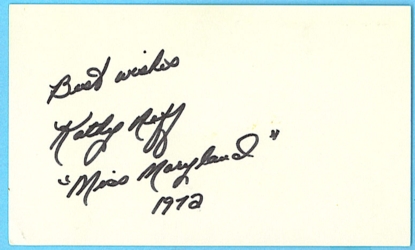 Best wishes
Kathy Neff
"Miss Maryland"
1972